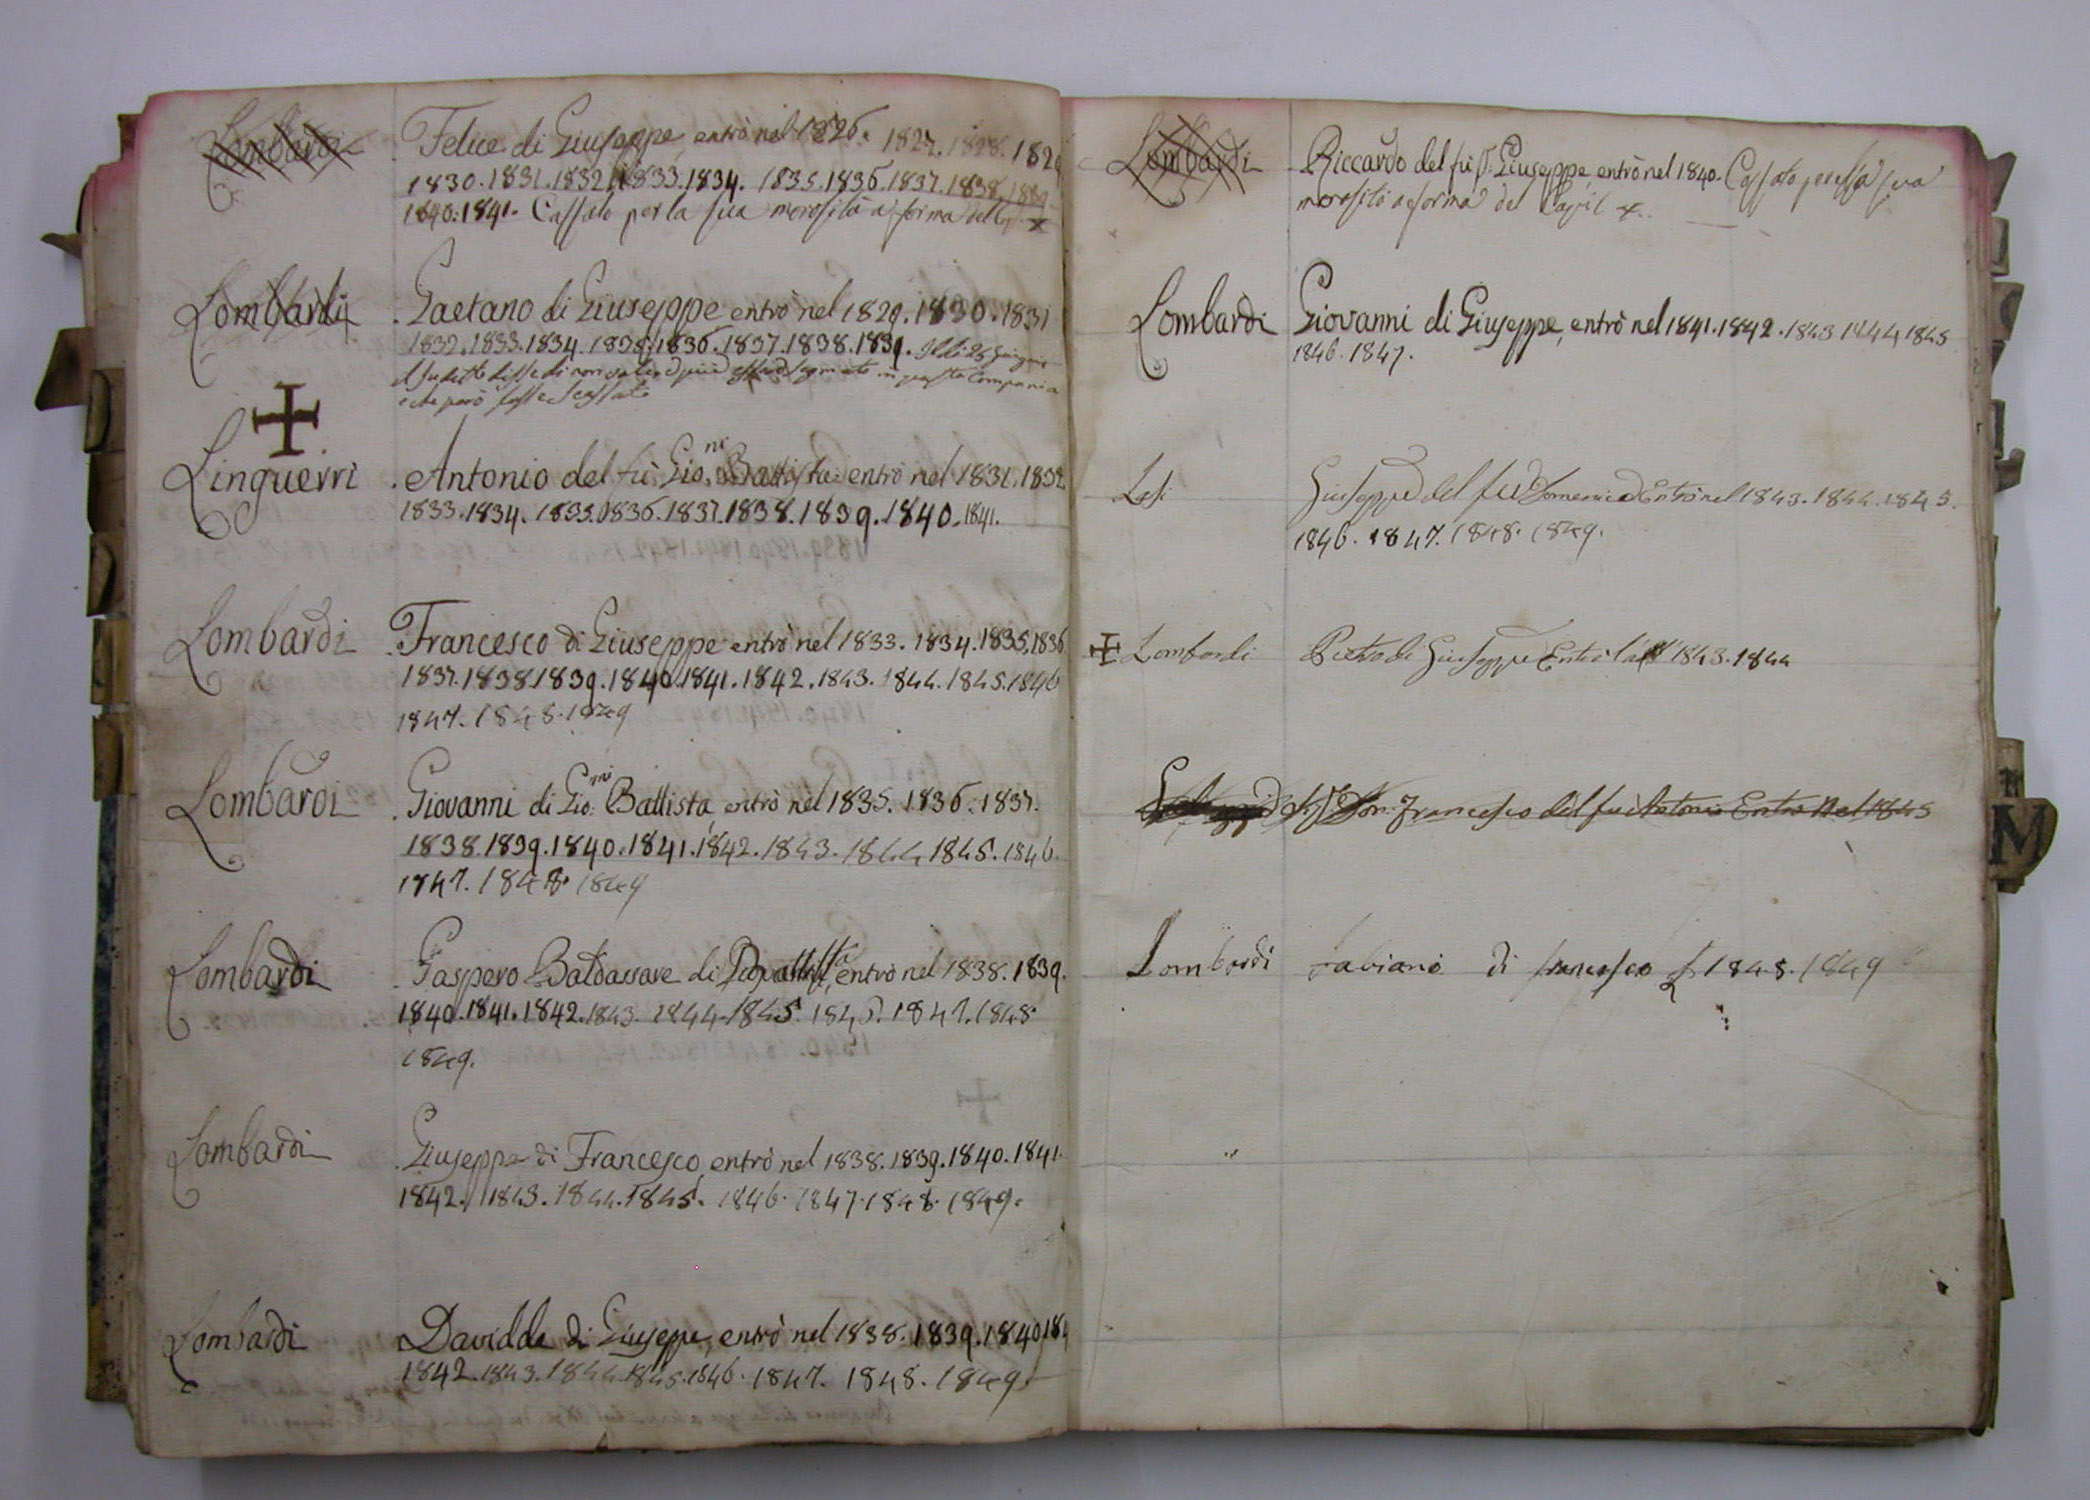 Lombardi
Felice di Giuseppe, entrò nel 1826. 1827. 1828. 182
1830. 1831. 1832. 1833. 1834. 1835. 1836. 1837. 1838. 1839
1840. 1841. Cassato per la sua morosità a forma del
Lombardi
Gaetano di Giuseppe entrò nel 1829. 1830. 1831
1832. 1833. 1834. 1835. 1836. 1837. 1838. 1839. 28 Giugno
disse di non in questa Compania
e che però fosse
Linguerri
Antonio del fù Gio. ni Battista entrò nel 1831. 1832.
1833. 1834. 1835. 1836. 1837. 1838. 1839. 1840. 1841.
Lombardi
Francesco di Giuseppe entrò nel 1833. 1834. 1835. 1836
1837. 1838. 1839. 1840. 1841. 1842. 1843. 1844. 1845. 1846
1847. 1848. 1849
Lombardi
Giovanni di Gio: ni Battista entrò nel 1835. 1836. 1837.
1838. 1839. 1840. 1841. 1842. 1843. 1844 1845. 1846.
1847. 1848. 1849
Lombardi
Gaspero Baldassare di entrò nel 1838. 1839.
1840. 1841. 1842. 1843. 1844. 1845. 1846. 1847. 1848.
1849.
Lombardi
Giuseppe di Francesco, entrò nel 1838. 1839. 1840. 1841.
1842. 1843. 1844. 1845. 1846. 1847. 1848. 1849.
Lombardi
Davidde di Giuseppe, entrò nel 1838. 1839. 1840. 184
1842. 1843. 1844. 1845. 1846. 1847. 1848. 1849.
Lombardi
Riccardo del fù Giuseppe, entrò nel 1840. Cassato per la sua
morosità a forma del Capil
Lombardi
Giovanni di Giuseppe, entrò nel 1841. 1842. 1843 1844 1845
1846. 1847.
Giuseppe del fu Domenico Entrò nel 1843. 1844. 1845.
1846. 1847. 1848. 1849.
Lombardi
Pietro di Giuseppe Entrò 1843. 1844
Don. Francesco del fu Antonio Entrò Nel 1845
Lombardi
Fabiano di Francesco 1848. 1849
M